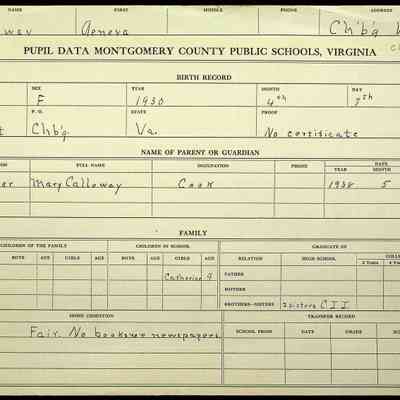 NAME FIRST MIDDLE PHONE ADDRESS
way Geneva Ch'b'g
PUPIL DATA MONTGOMERY COUNTY PUBLIC SCHOOLS, VIRGINIA
BIRTH RECORD
SEX YEAR MONTH DAY
F 1930 4th 7th
P. O. STATE PROOF
Chb'g. Va. No certificate
NAME OF PARENT OR GUARDIAN
FULL NAME OCCUPATION PHONE DATE
YEAR MONTH
er Mary Calloway Cook 1938 5
FAMILY
CHILDREN OF THE FAMILY CHILDREN IN SCHOOL GRADUATE OF
BOYS AGE GIRLS AGE BOYS AGE GIRLS AGE RELATION HIGH SCHOOL 2 Years
Catherine 9 FATHER
MOTHER
BROTHERS-SISTERS 2 sisters C I I
HOME CONDITION TRANSFER RECORD
Fair. No books or newspapers SCHOOL FROM DATE GRADE